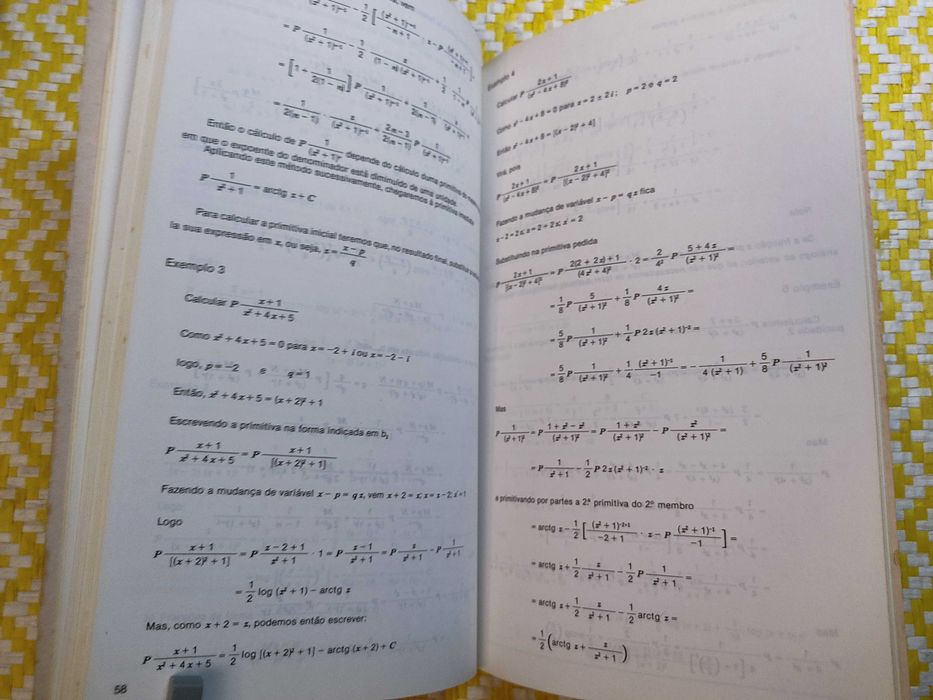 Então o cálculo de P 1/(z² + 1)ⁿ depende do cálculo duma primitiva do mesmo
em que o expoente do denominador está diminuído de uma unidade.
Aplicando este método sucessivamente, chegaremos à primitiva imediata
P 1/(z² + 1) = arctg z + C
Para calcular a primitiva inicial teremos que, no resultado final, substituir z
la sua expressão em x, ou seja, z = (x − p)/q.
Exemplo 3
Calcular P (x + 1)/(x² + 4x + 5)
Como x² + 4x + 5 = 0 para x = −2 + i ou x = −2 − i
logo, p = −2 e q = 1
Então, x² + 4x + 5 = (x + 2)² + 1
Escrevendo a primitiva na forma indicada em b₂
P (x + 1)/(x² + 4x + 5) = P (x + 1)/[(x + 2)² + 1]
Fazendo a mudança de variável x − p = qz, vem x + 2 = z; x = z − 2; x' = 1
Logo
P (x + 1)/[(x + 2)² + 1] = P (z − 2 + 1)/(z² + 1) · 1 = P (z − 1)/(z² + 1) = P z/(z² + 1) − P 1/(z² + 1)
= 1/2 log (z² + 1) − arctg z
Mas, como x + 2 = z, podemos então escrever:
P (x + 1)/(x² + 4x + 5) = 1/2 log [(x + 2)² + 1] − arctg (x + 2) + C
58
Exemplo 4
Calcular P (2x + 1)/(x² − 4x + 8)²
Como x² − 4x + 8 = 0 para x = 2 ± 2i; p = 2 e q = 2
Então x² − 4x + 8 = [(x − 2)² + 4]
Virá, pois
P (2x + 1)/(x² − 4x + 8)² = P (2x + 1)/[(x − 2)² + 4]²
Fazendo a mudança de variável x − p = qz fica
x − 2 = 2z; x = 2 + 2z; x' = 2
Substituindo na primitiva pedida
P (2x + 1)/[(x − 2)² + 4]² = P (2(2 + 2z) + 1)/(4z² + 4)² · 2 = 2/4² P (5 + 4z)/(z² + 1)² =
= 1/8 P 5/(z² + 1)² + 1/8 P 4z/(z² + 1)² =
= 5/8 P 1/(z² + 1)² + 1/4 P 2z(z² + 1)⁻² =
= 5/8 P 1/(z² + 1)² + 1/4 (z² + 1)⁻¹/−1 = −1/(4(z² + 1)) + 5/8 P 1/(z² + 1)²
Mas
P 1/(z² + 1)² = P (1 + z² − z²)/(z² + 1)² = P (1 + z²)/(z² + 1)² − P z²/(z² + 1)² =
= P 1/(z² + 1) − 1/2 P 2z(z² + 1)⁻² · z
e primitivando por partes a 2.ª primitiva do 2.º membro
= arctg z − 1/2 [(z² + 1)⁻²⁺¹/(−2 + 1) · z − P (z² + 1)⁻¹/−1] =
= arctg z + 1/2 z/(z² + 1) − 1/2 P 1/(z² + 1) =
= arctg z + 1/2 z/(z² + 1) − 1/2 arctg z =
= 1/2 (arctg z + z/(z² + 1))